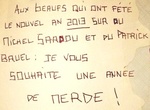 AUX BEAUFS QUI ONT FÊTÉ
LE NOUVEL AN 2013 SUR DU
MICHEL SARDOU ET DU PATRICK
BRUEL : JE VOUS
SOUHAITE UNE ANNÉE
DE MERDE !